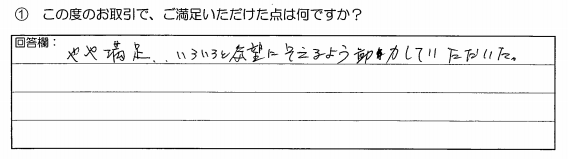 ① この度のお取引で、ご満足いただけた点は何ですか？
回答欄：
やや満足．．いろいろと希望にそえるよう努力していただいた。